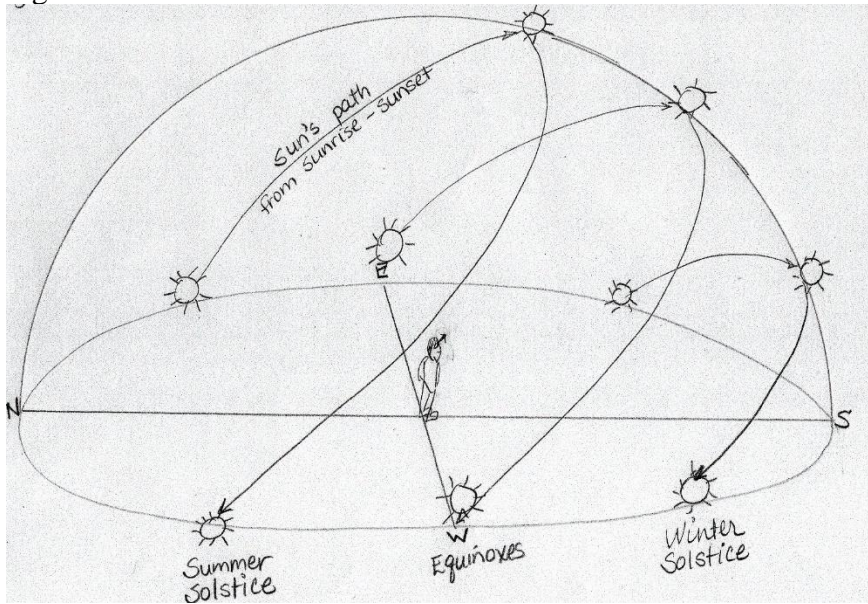 Sun's path
from sunrise - sunset
E
N
S
W
Summer
Solstice
Equinoxes
Winter
Solstice